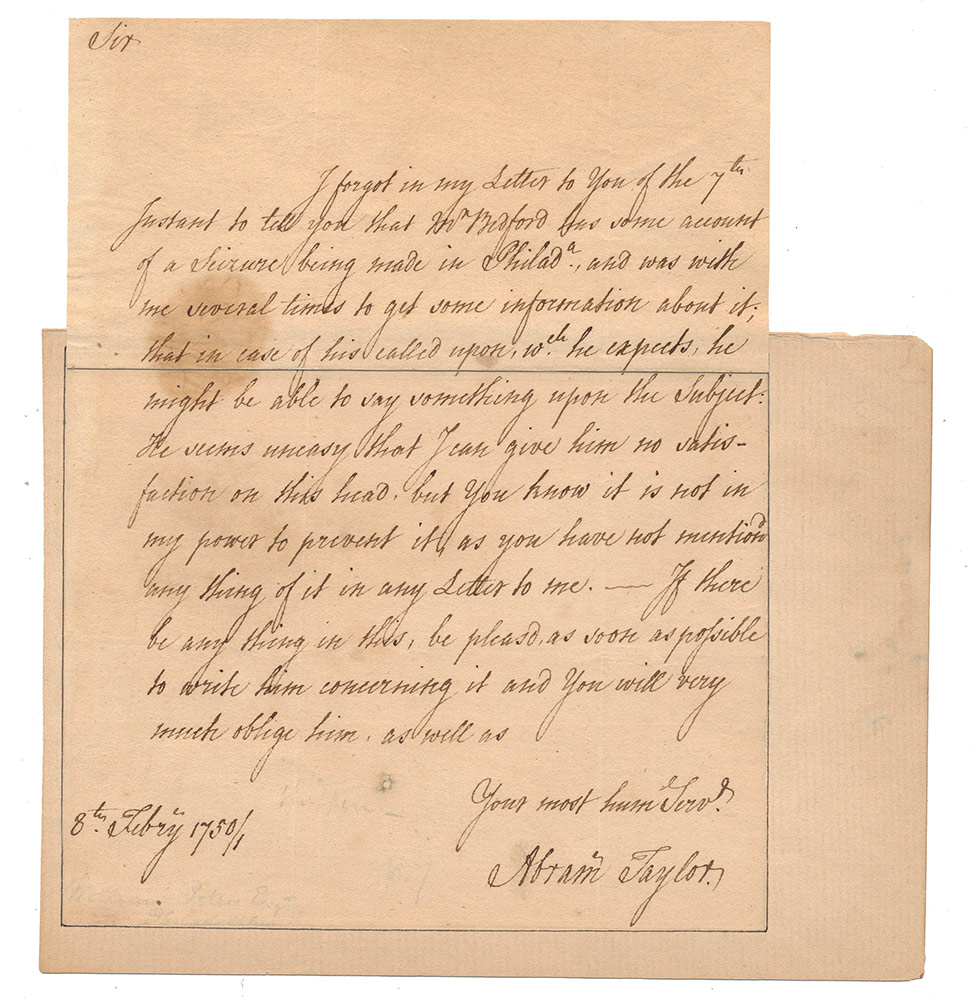 Sir
I forgot in my Letter to You of the 7th
Instant to tell you that Mr Bedford has some account
of a Seizure being made in Philada., and was with
me several times to get some information about it;
that in case of his called upon, wch he expects, he
might be able to say something upon the Subject:
He seems uneasy that I can give him no satis-
faction on this head, but You know it is not in
my power to prevent it, as you have not mention'd
any thing of it in any Letter to me. — If there
be any thing in this, be pleasd, as soon as possible
to write him concerning it and You will very
much oblige him, as well as
Your most humle Servt.
8th. Febry 1750/1
Abram Taylor.